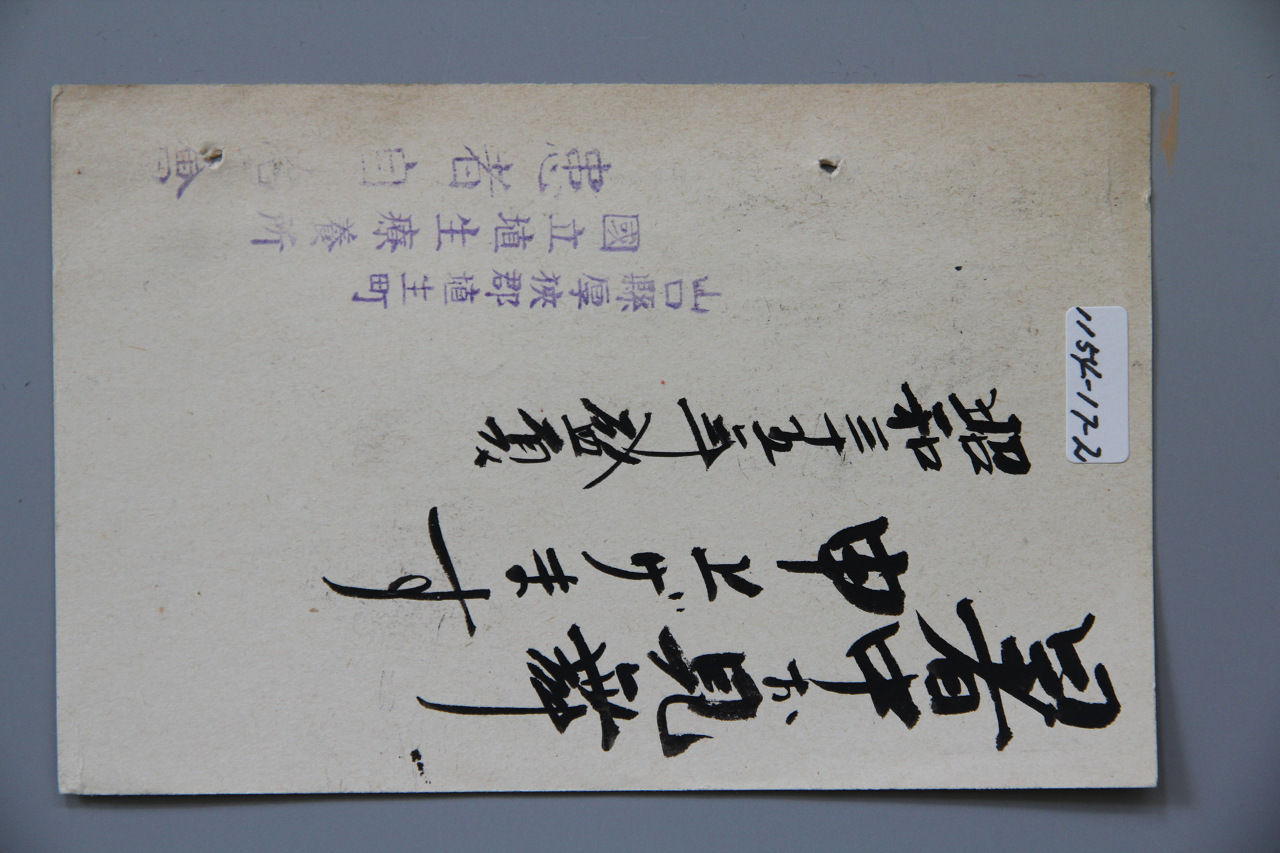 暑中お見舞
申上げます
昭和三十五年盛夏
山口縣厚狭郡埴生町
國立埴生療養所
患者自治會
1154-17-2